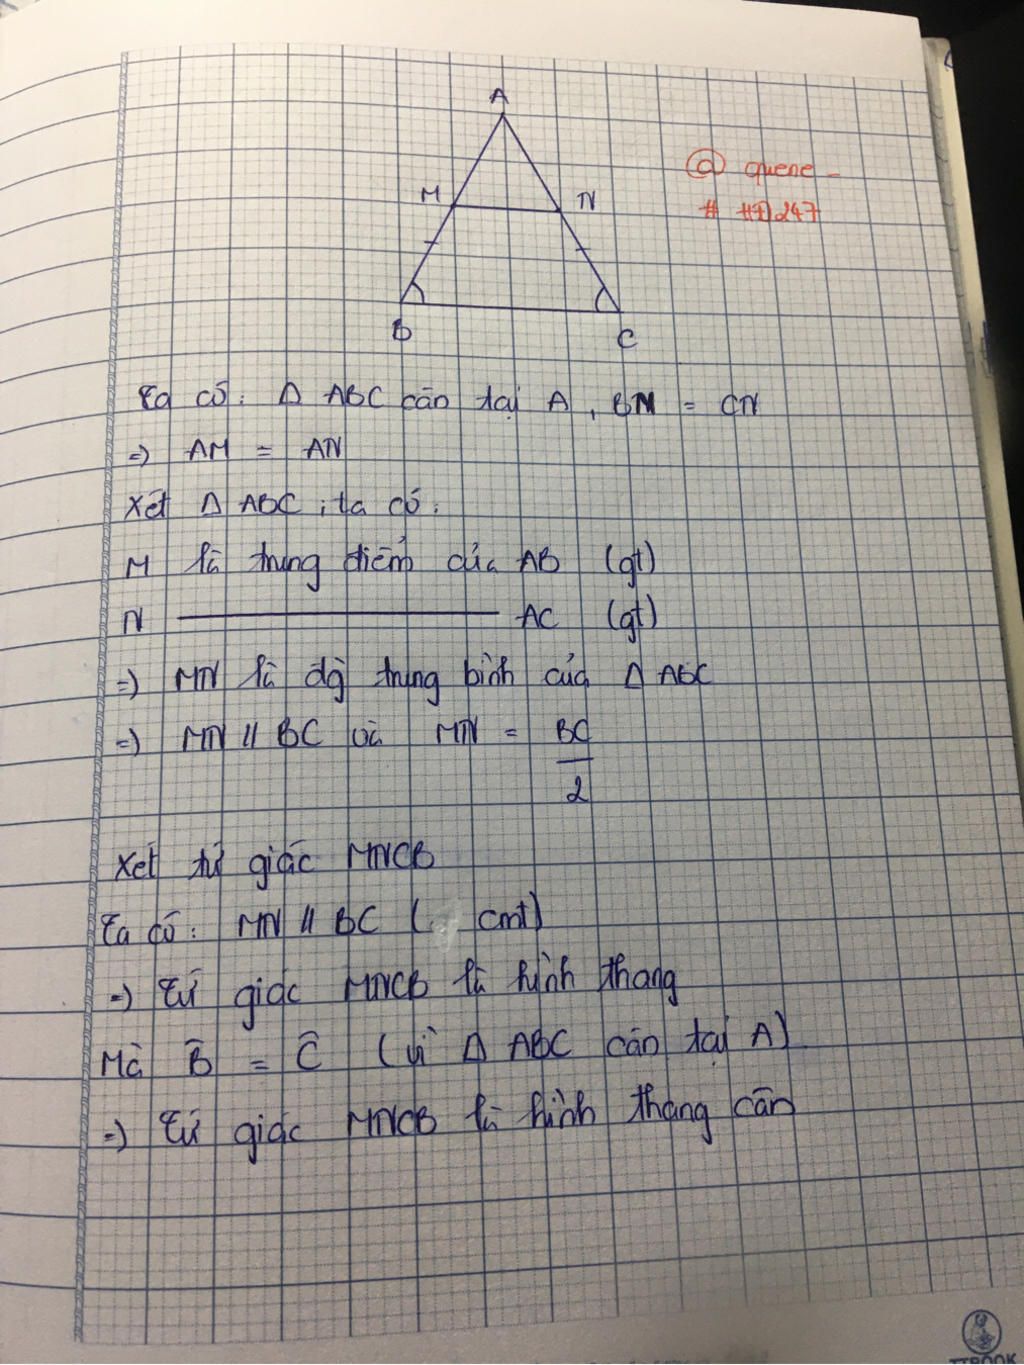 A
M
N
@ quene -
# HĐ247
B
C
Ta có: Δ ABC cân tại A, BM = CN
=> AM = AN
Xét Δ ABC, ta có:
M là trung điểm của AB (gt)
N ———————— AC (gt)
=> MN là đg trung bình của Δ ABC
=> MN // BC và MN = BC
2
Xét tứ giác MNCB
Ta có: MN // BC ( cmt)
=> Tứ giác MNCB là hình thang
Mà B̂ = Ĉ (vì Δ ABC cân tại A)
=> Tứ giác MNCB là hình thang cân